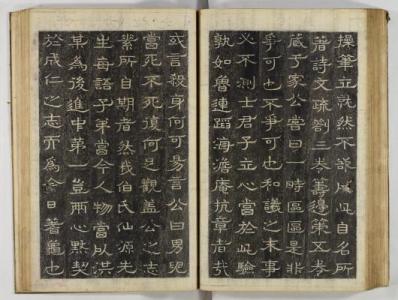 操筆立就然不設成此自名所
著詩文疏劄三奏籌邊策五奏
藏于家公嘗曰一時區區是非
爭可也不爭可也和議之末事
必不測士君子立心當於此驗
孰如魯連蹈海澹庵抗章者哉
或言殺身何可易言公曰男兒
當死不死復何足觀蓋公之志
素所自期者然我伯氏仙源先
生每語子弟當今人物當以洪
某為後進中第一豈兩心默契
於成仁之志而為今日蓍龜也